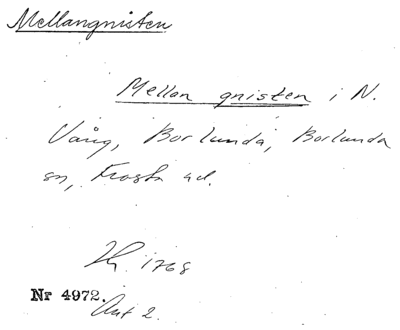 Mellangnisten
Mellan gnisten i N.
Vång, Borlunda, Borlunda
sn, Frosta hd.
1768
Nr 4972.
Akt 2.